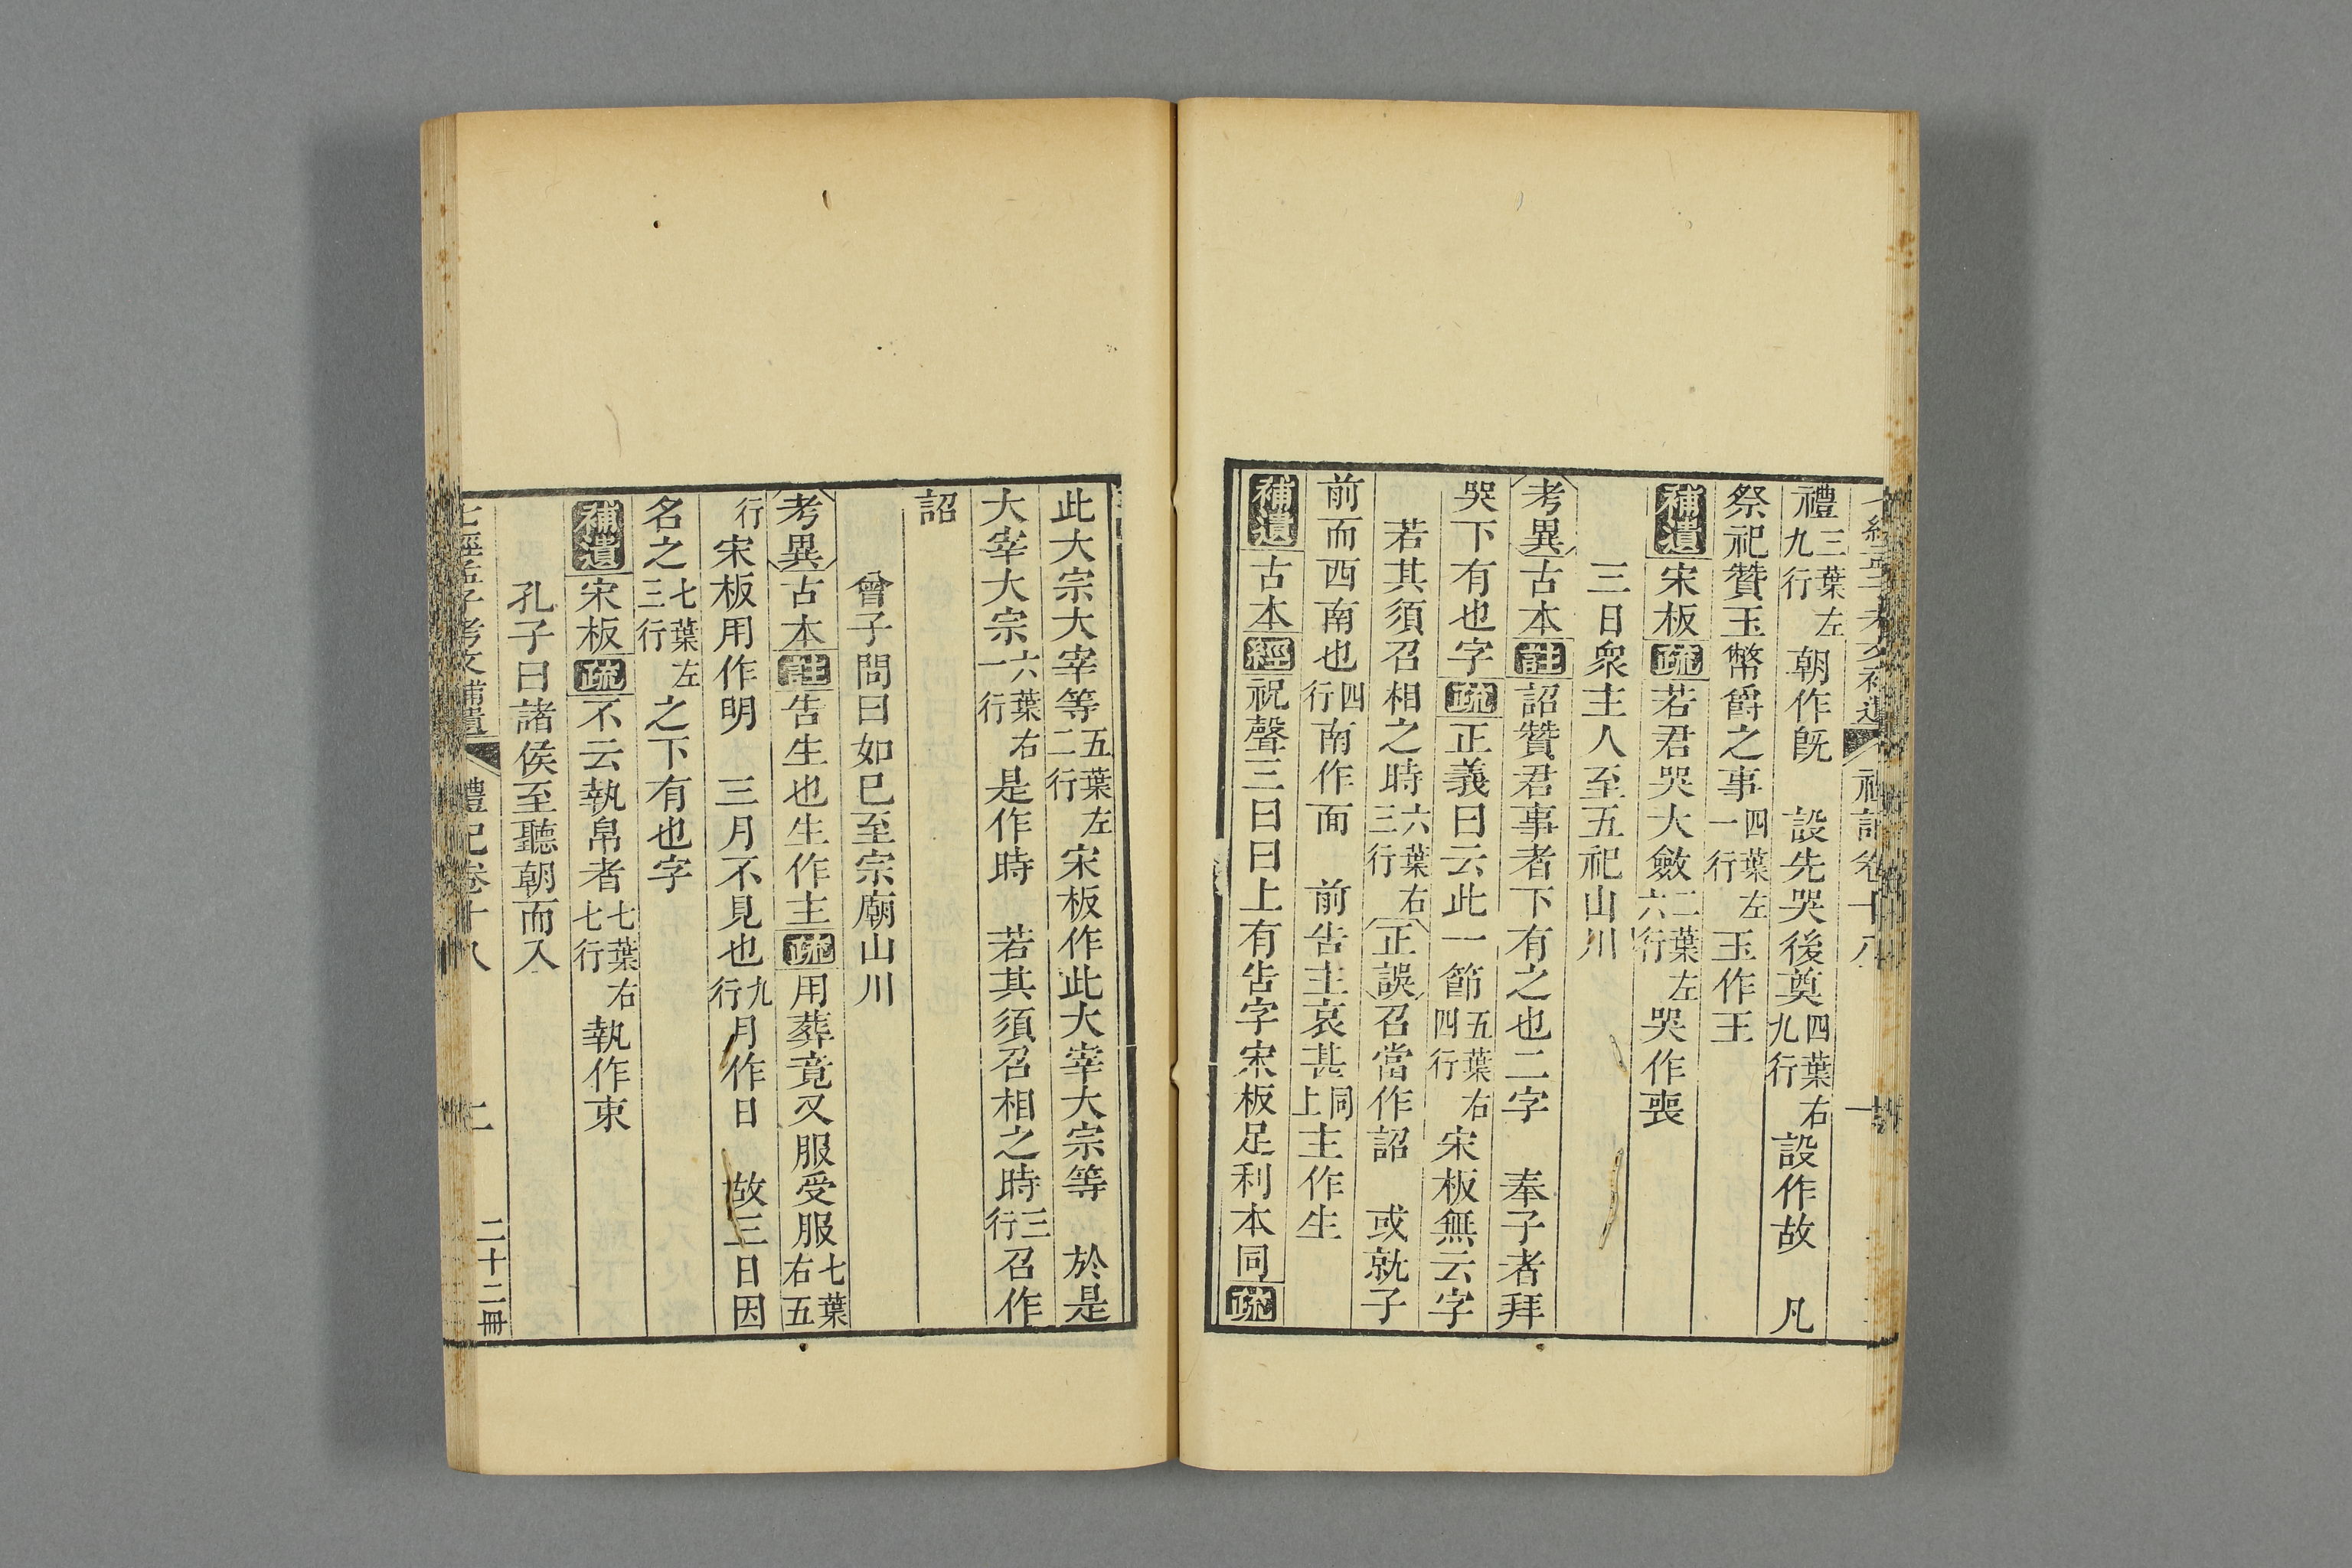 七經孟子考文補遺 禮記卷十八 一
禮三葉左九行朝作旣 設先哭後奠四葉右九行設作故 凡
祭祀贊玉幣爵之事四葉左一行玉作王
補遺宋板疏若君哭大斂二葉左六行哭作喪
三日衆主人至五祀山川
考異古本註詔贊君事者下有之也二字 奉子者拜
哭下有也字疏正義曰云此一節五葉右四行宋板無云字
若其須召相之時六葉右三行正誤召當作詔 或就子
前而西南也四行南作面 前告主哀甚同上主作生
補遺古本經祝聲三曰曰上有告字宋板足利本同疏
此大宗大宰等五葉左二行宋板作此大宰大宗等 於是
大宰大宗六葉右一行是作時 若其須召相之時三行召作
詔
曾子問曰如已至宗廟山川
考異古本註告生也生作主疏用葬竟又服受服七葉右五
行宋板用作明 三月不見也九行月作日 故三日因
名之七葉左三行之下有也字
補遺宋板疏不云執帛者七葉右七行執作束
孔子曰諸侯至聽朝而入
七經孟子考文補遺 禮記卷十八 二 二十二冊